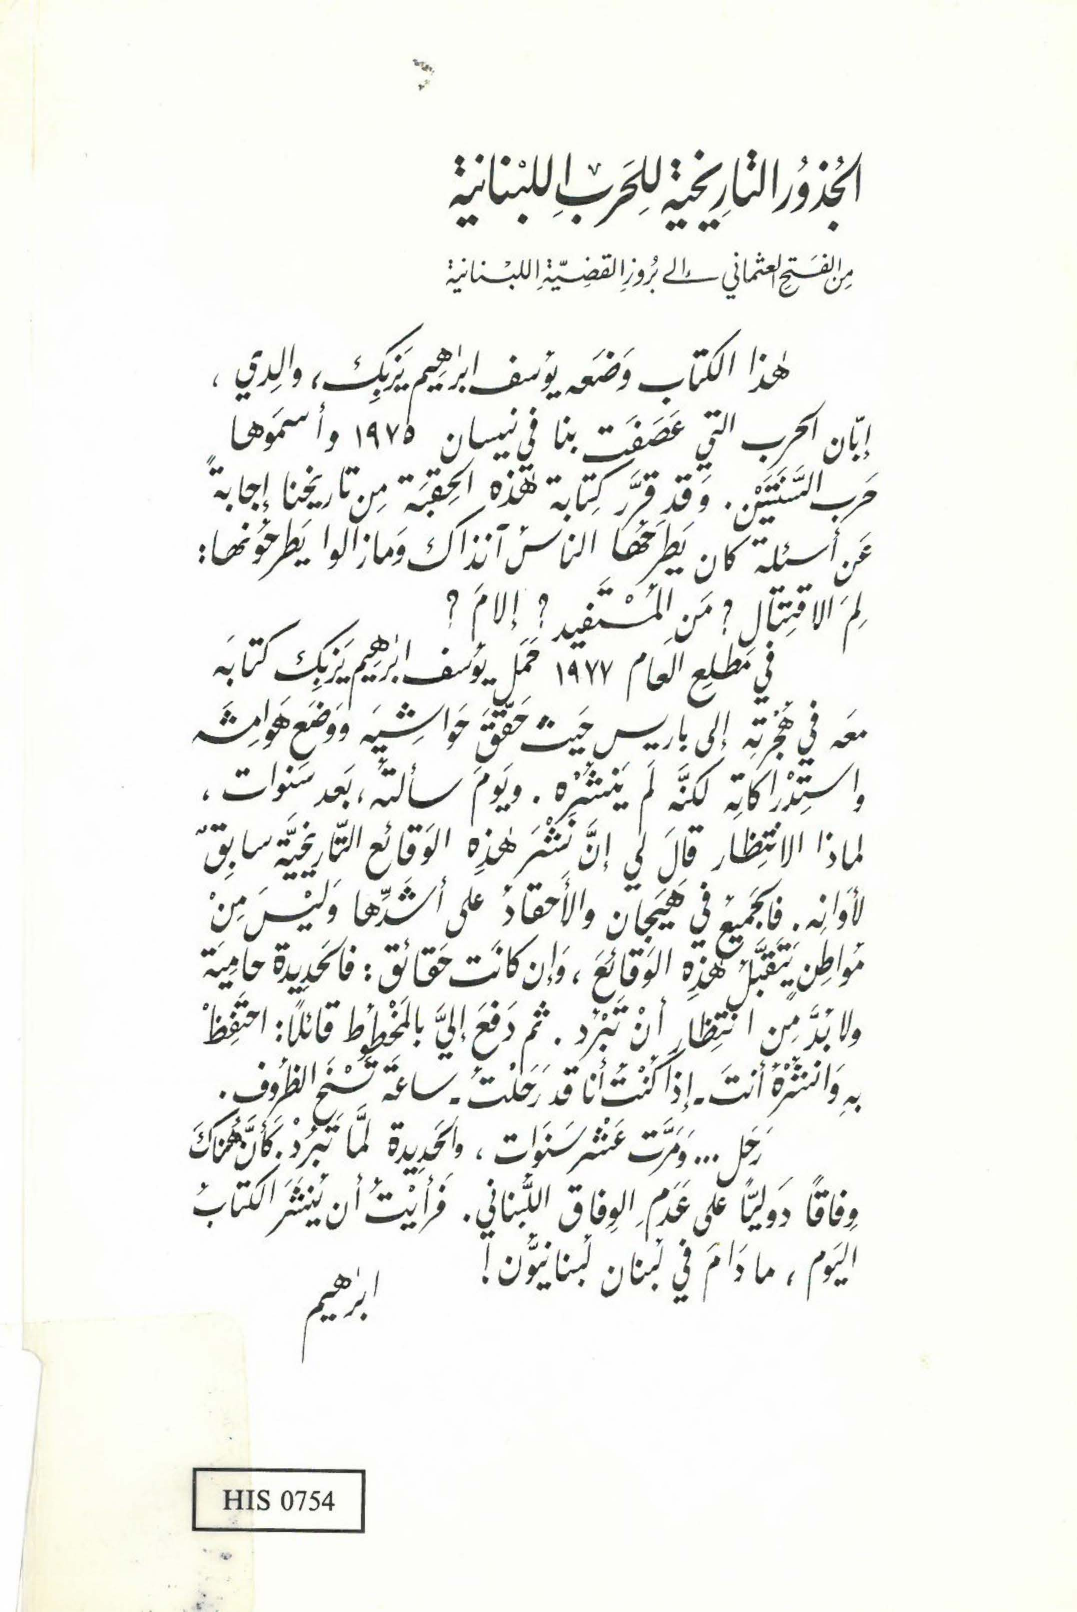 الجُذورُ التّارِيخيّة لِلحَربِ اللبْنانية
مِن الفَتحِ العثماني إلى بُروزِ القضِيّةِ اللبْنانية
هٰذا الكتاب وَضَعَه يُوسف ابرٰهيم يَزبِك، والِدي،
إبّان الحرب التي عَصَفَت بنا في نيسان ١٩٧٥ وأسمَوها
حَرب السَّنَتَيْن. وَقد قرَّر كِتابة هٰذه الحِقبَة مِن تاريخنا إجابةً
عَن أسئلة كان يَطرَحُها الناسُ آنذاك وَمازالوا يَطرحُونها:
لِمَ الاقتِتال؟ مَن المُسْتَفيد؟ إلامَ؟
في مَطلعِ العَام ١٩٧٧ حَمَل يُوسف ابرٰهيم يَزبِك كتابَه
معَه في هُجْرتِه إلى باريس حَيث حَقّقَ حَواشِيَه وَوَضَع هَوامِشَه
واستِدْراكاتِه لكنَّه لَم يَنشُرْه. ويَومَ سألتُه، بَعد سَنوات،
لماذا الانتِظار قالَ لي إنَّ نَشْرَ هٰذِه الوَقائع التّاريخيَّة سابِقٌ
لأوَانِه. فالجَميعُ في هَيَجان والأَحقادُ على أشَدِّها وَليْسَ مِنْ
مُواطِنٍ يَتَقبَّلُ هٰذِه الوَقائعَ، وَإن كانَت حَقائق: فالحَديدة حامِيَة
ولا بُدَّ مِن انتِظارِ أنْ تَبْرُد. ثم دَفعَ إليَّ بالمَخْطُوط قائلًا: احتَفِظْ
بِه وَانشُرْهُ أنتَ ـ إذا كُنْتُ أنا قد رَحَلْتُ ـ ساعةَ تَسْنَحُ الظروف.
رَحَل... وَمَرَّت عَشْر سَنَوات، والحَديدة لمَّا تَبْرُدْ. كأنَّ هُناكَ
وِفاقًا دَوليًّا على عَدَمِ الوِفاق اللّبناني. فَرأيْتُ أن يُنشَرَ الكتابُ
اليَوم، ما دَامَ في لبنان لبنانيُّون!
ابرٰهيم
HIS 0754